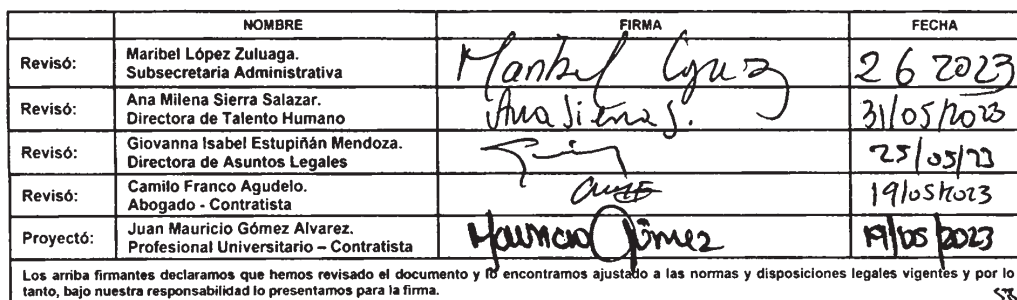 NOMBRE FIRMA FECHA
Revisó: Maribel López Zuluaga.
Subsecretaria Administrativa
Maribel 26 2023
Revisó: Ana Milena Sierra Salazar.
Directora de Talento Humano
Ana Sierra S. 31/05/2023
Revisó: Giovanna Isabel Estupiñán Mendoza.
Directora de Asuntos Legales
25/05/23
Revisó: Camilo Franco Agudelo.
Abogado - Contratista
19/05/2023
Proyectó: Juan Mauricio Gómez Alvarez.
Profesional Universitario – Contratista
Mauricio Gómez 19/05/2023
Los arriba firmantes declaramos que hemos revisado el documento y lo encontramos ajustado a las normas y disposiciones legales vigentes y por lo
tanto, bajo nuestra responsabilidad lo presentamos para la firma.